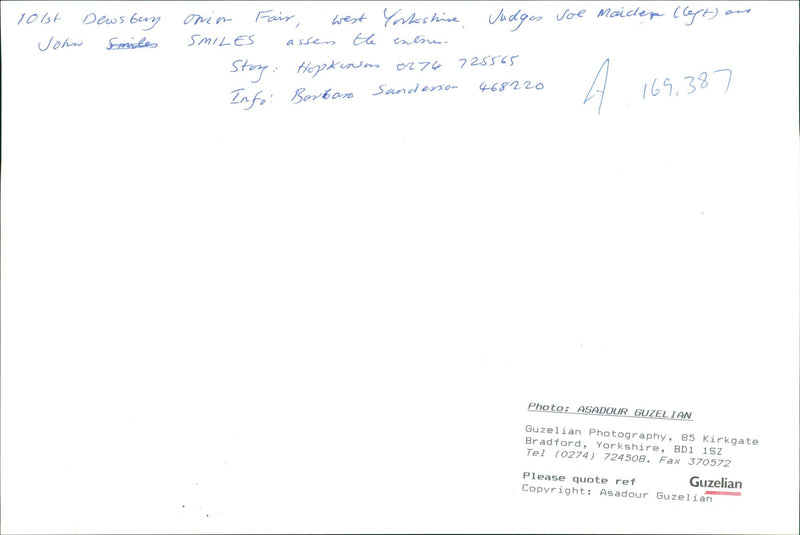 101st Dewsbury Onion Fair, West Yorkshire. Judges Joe Maiden (left) and
John Smiles SMILES assess the entries.
Story: Hopkinson 0274 725565
Info: Barbara Sanderson 468220
A 169,387
Photo: ASADOUR GUZELIAN
Guzelian Photography, 85 Kirkgate
Bradford, Yorkshire, BD1 1SZ
Tel (0274) 724508. Fax 370572
Please quote ref Guzelian
Copyright: Asadour Guzelian